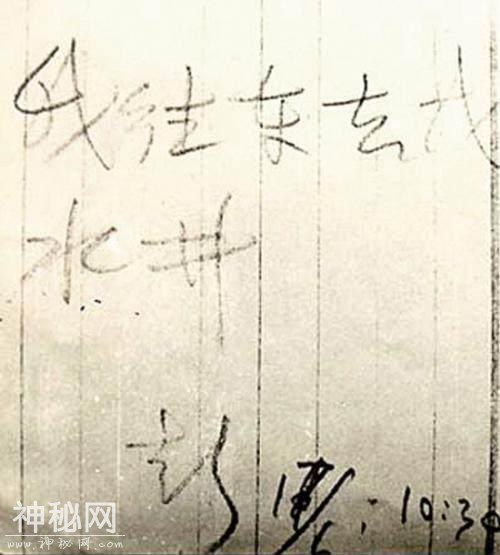 我往东去找
水井
彭 10:30
神秘网
www.神秘网.com